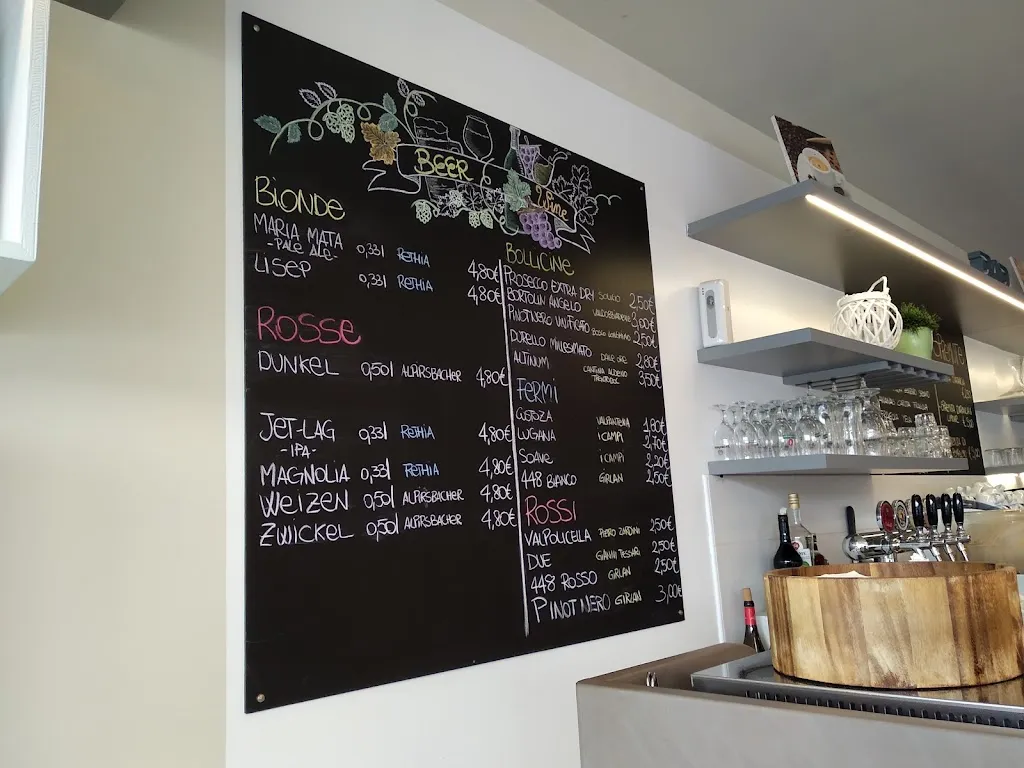 BEER
Wine
BIONDE
MARIA MATA 0,33l RETHIA 4,80€
-PALE ALE-
LISEP 0,33l RETHIA 4,80€
ROSSE
DUNKEL 0,50l ALPIRSBACHER 4,80€
JET-LAG 0,33l RETHIA 4,80€
-IPA-
MAGNOLIA 0,33l RETHIA 4,80€
WEIZEN 0,50l ALPIRSBACHER 4,80€
ZWICKEL 0,50l ALPIRSBACHER 4,80€
BOLLICINE
PROSECCO EXTRA DRY 2,50€
BORTOLIN ANGELO VALDOBBIADENE 3,00€
PINOT NERO VINIFICATO 2,50€
DURELLO MILLESIMATO 2,80€
ALTINUM 3,50€
FERMI
CUSTOZA VALPANTENA 1,80€
LUGANA I CAMPI 2,70€
SOAVE I CAMPI 2,20€
448 BIANCO GIRLAN 2,50€
ROSSI
VALPOLICELLA PIETRO ZARDINI 2,50€
DUE GIANNI TESSARI 2,50€
448 ROSSO GIRLAN 2,50€
PINOT NERO GIRLAN 3,00€